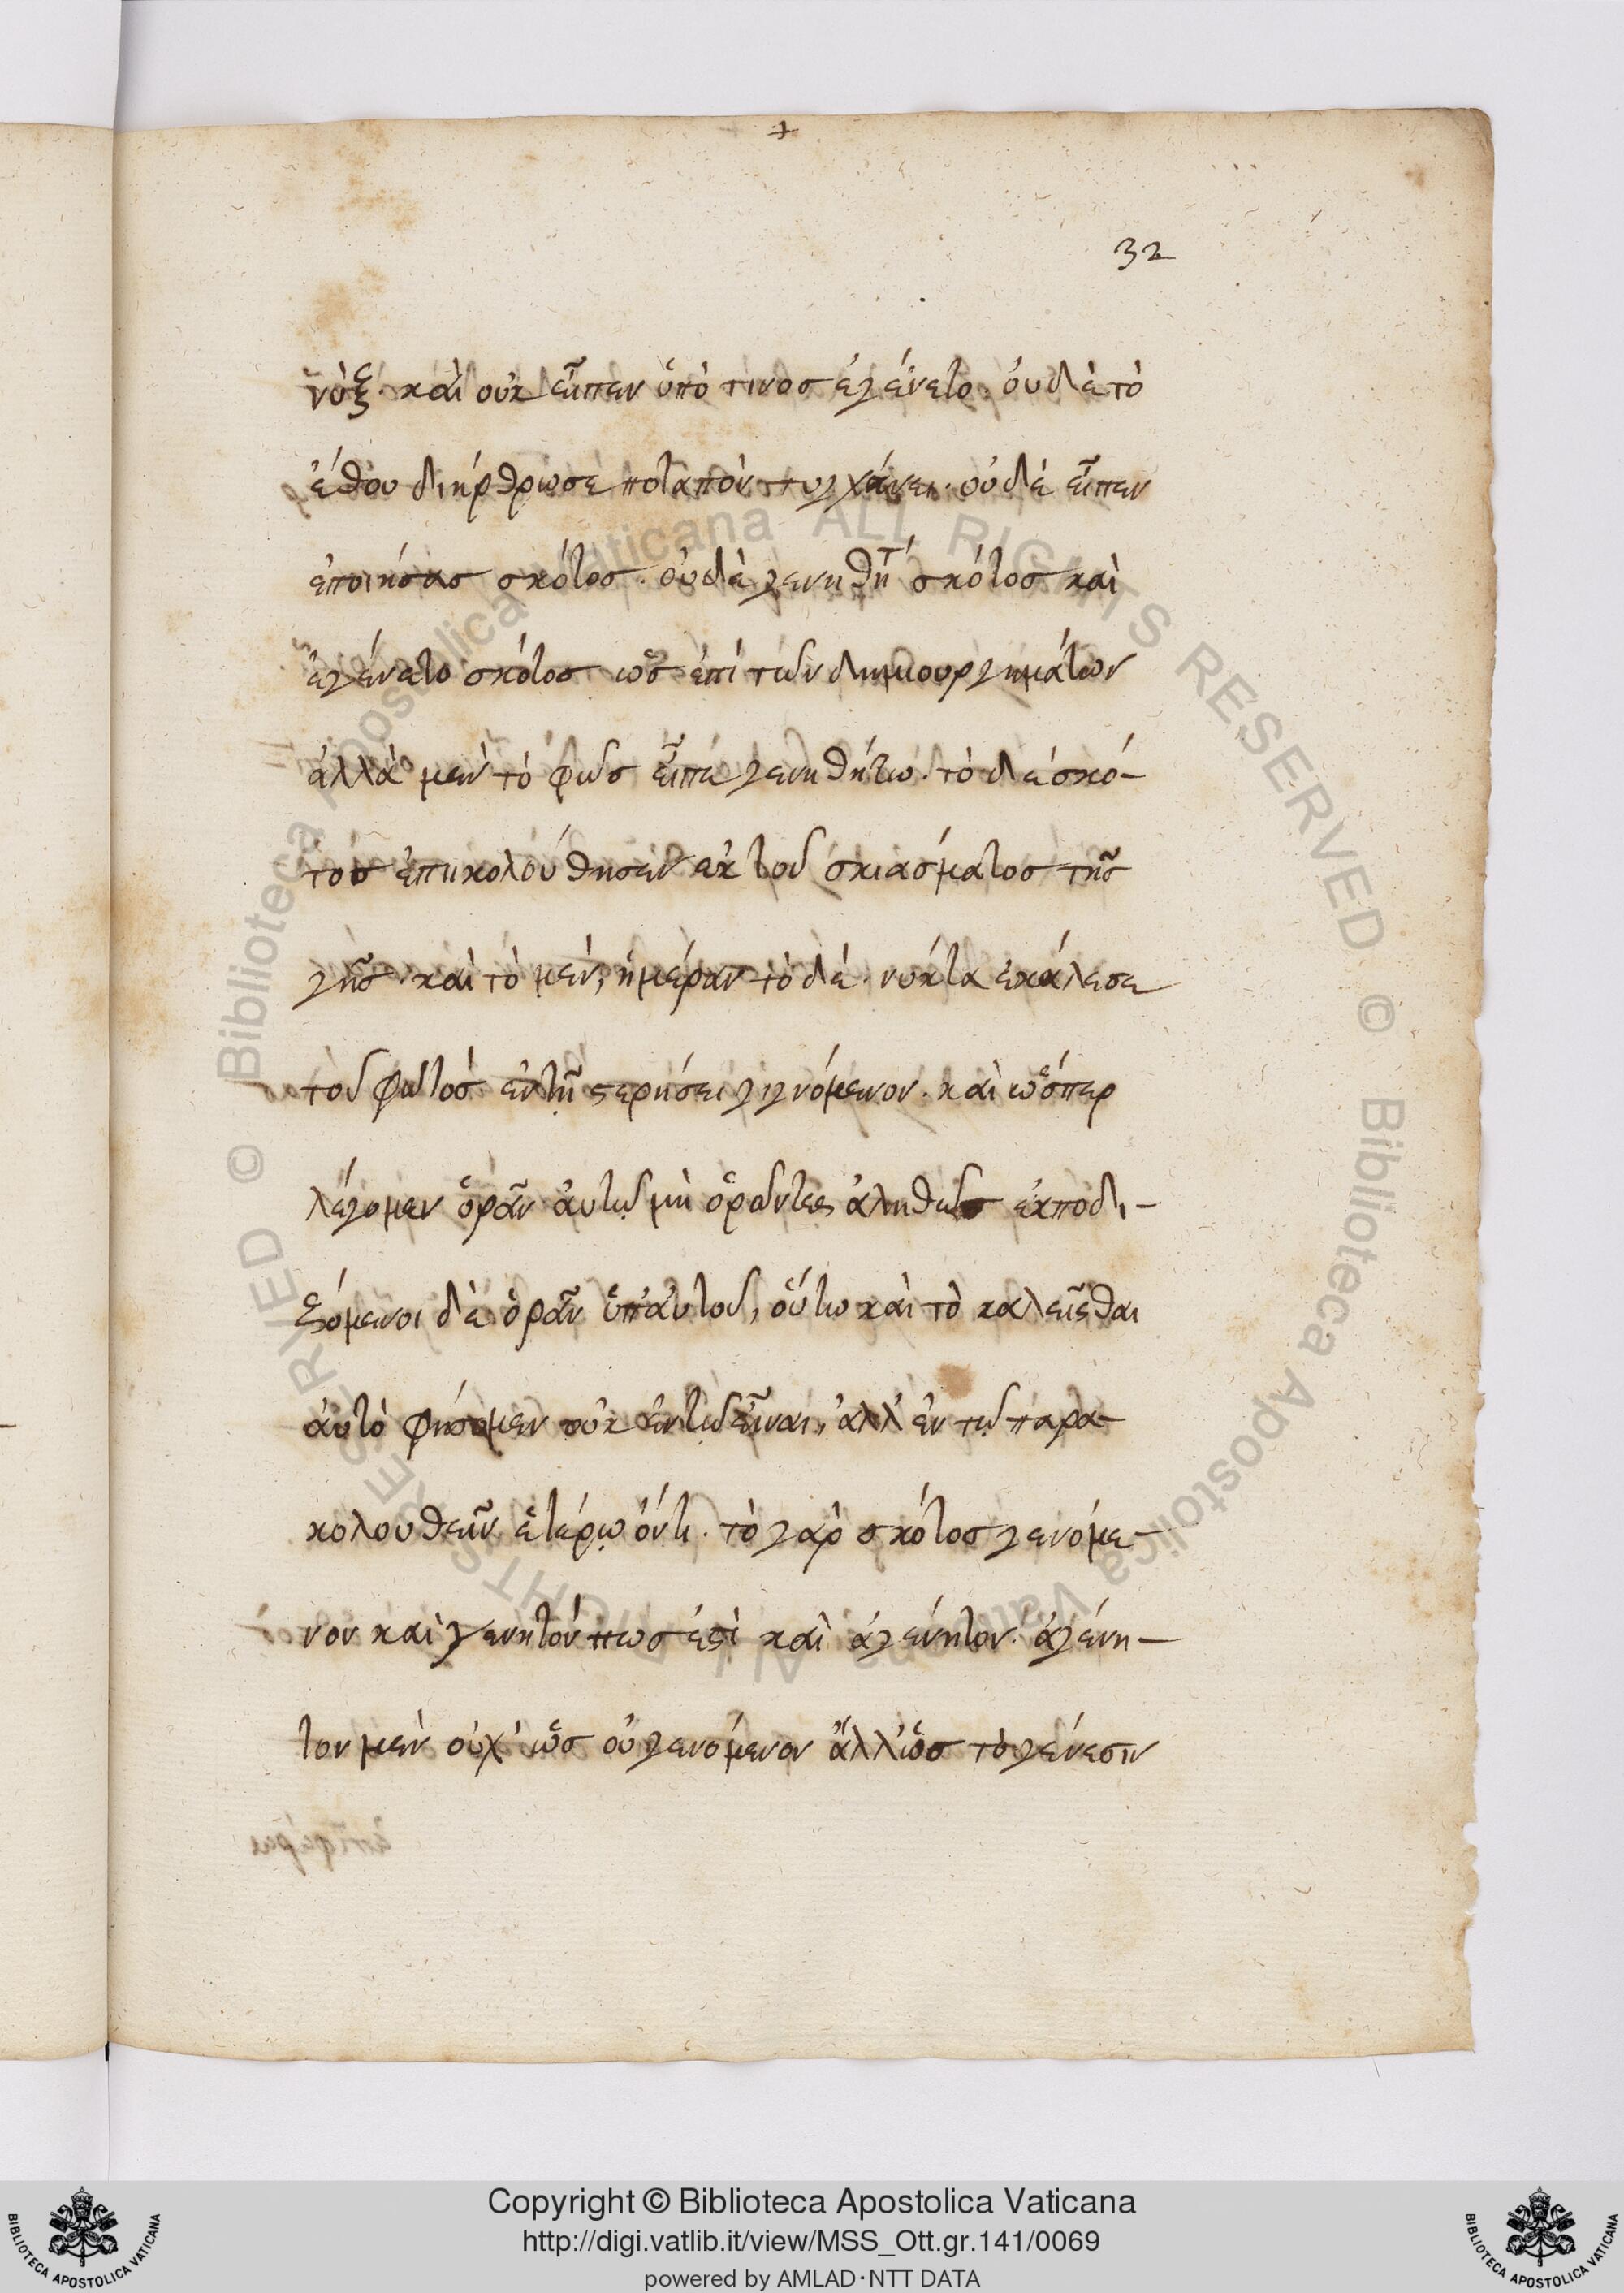 32
νὺξ. καὶ οὐκ εἶπεν ὑπό τινοσ ἐγένετο. οὐδὲ τὸ
ἔθου διήρθρωσε ποταπὸν τυγχάνει. οὐδὲ εἶπεν
ἐποιήσασ σκότοσ. οὐδὲ γενηθήτ σκότοσ καὶ
ἐγένετο σκότοσ ὡσ ἐπὶ τῶν δημιουργημάτων
ἀλλὰ μὲν τὸ φῶσ εἶπε γενηθήτω. τὸ δὲ σκό-
τοσ ἐπηκολούθησεν ἐκ τοῦ σκιάσματοσ τῆσ
γῆσ. καὶ τὸ μὲν, ἡμέραν τὸ δὲ. νύκτα ἐκάλεσε
τοῦ φωτὸσ ἐν τῇ στερήσει γινόμενον. καὶ ὥσπερ
λέγομεν ὁρᾶν αὐτῷ μὴ ὁρῶντες ἀληθῶσ ἐκποδι-
ξόμενοι δὲ ὁρᾶν ὑπ' αὐτοῦ, οὕτω καὶ τὸ καλεῖσθαι
αὐτὸ φήσομεν οὐκ ἐν τῷ εἶναι, ἀλλ' ἐν τῷ παρα-
κολουθεῖν ἑτέρῳ ὄντι. τὸ γὰρ σκότοσ γενόμε-
νον καὶ γενητόν πωσ ἐστὶ καὶ ἀγένητον. ἀγένη-
τον μὲν οὐχ' ὡσ οὐ γενόμενον ἀλλ' ὡσ τὸ γένεσιν
Copyright © Biblioteca Apostolica Vaticana
http://digi.vatlib.it/view/MSS_Ott.gr.141/0069
powered by AMLAD·NTT DATA
BIBLIOTECA APOSTOLICA VATICANA
BIBLIOTECA APOSTOLICA VATICANA
© Biblioteca Apostolica Vaticana ALL RIGHTS RESERVED © Biblioteca Apostolica Vaticana ALL RIGHTS RESERVED